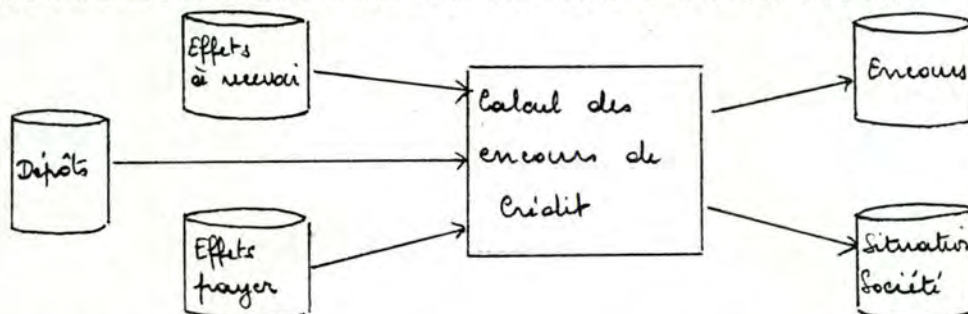 Effets
à recevoir
Dépôts
Effets
payer
Calcul des
encours de
Crédit
Encours
Situation
Société